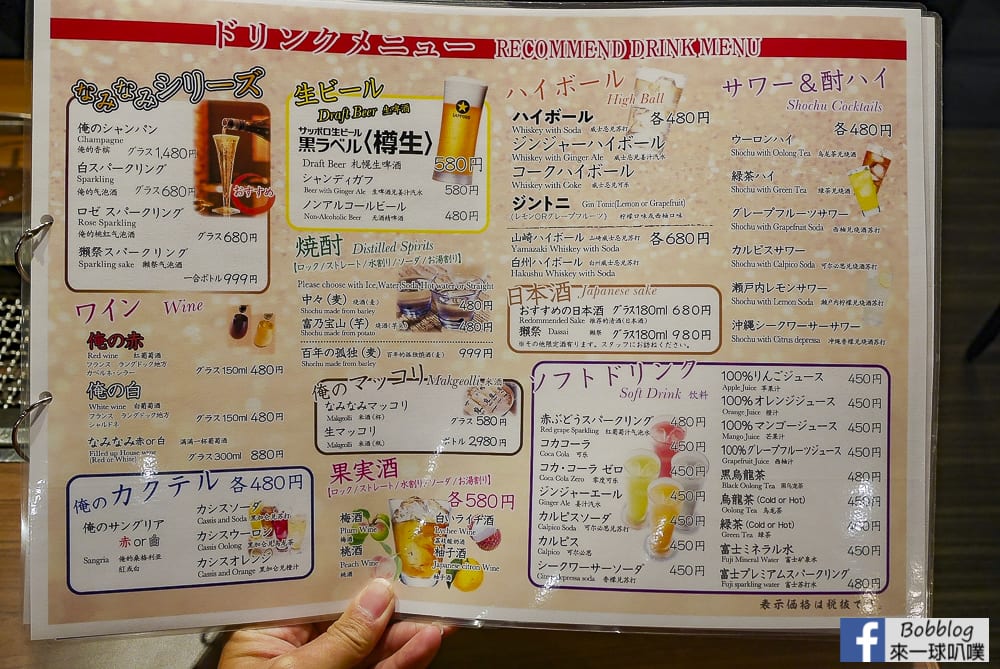 ドリンクメニュー RECOMMEND DRINK MENU
なみなみシリーズ
俺のシャンパン
Champagne
俺的香槟 グラス1,480円
白スパークリング
Sparkling
俺的气泡酒 グラス680円
おすすめ
ロゼ スパークリング
Rose Sparkling
俺的桃红气泡酒 グラス680円
獺祭スパークリング
Sparkling sake 獭祭气泡酒
一合ボトル 999円
ワイン Wine
俺の赤
Red wine 红葡萄酒
フランス ラングドック地方
カベルネ・シラー グラス150ml 480円
俺の白
White wine 白葡萄酒
フランス ラングドック地方
シャルドネ グラス150ml 480円
なみなみ赤or白 满满一杯葡萄酒
Filled up House wine
(Red or White) グラス300ml 880円
俺のカクテル 各480円
俺のサングリア
赤or白
Sangria 俺的桑格利亚
红或白
カシスソーダ
Cassis and Soda 黑加仑兑苏打
カシスウーロン
Cassis Oolong 黑加仑兑乌龙茶
カシスオレンジ
Cassis and Orange 黑加仑兑橙汁
生ビール
Draft Beer 生啤酒
サッポロ生ビール
黒ラベル〈樽生〉
SAPPORO
Draft Beer 札幌生啤酒 580円
シャンディガフ
Beer with Ginger Ale 生啤酒兑姜汁汽水 580円
ノンアルコールビール
Non-Alcoholic Beer 无酒精啤酒 480円
焼酎 Distilled Spirits
【ロック/ストレート/水割り/ソーダ/お湯割り】
Please choose with Ice,Water,Soda,Hot water or Straight
中々(麦) 烧酒(麦) 480円
Shochu made from barley
富乃宝山(芋) 烧酒(芋) 480円
Shochu made from potato
百年の孤独(麦) 百年的孤独烧酒(麦) 999円
Shochu made from barley
俺のマッコリ Makgeolli 米酒
なみなみマッコリ
Makgeolli 米酒(杯) グラス 580円
生マッコリ
Makgeolli 米酒(瓶) ボトル 2,980円
果実酒
【ロック/ストレート/水割り/ソーダ/お湯割り】
各580円
梅酒
Plum Wine
梅酒
桃酒
Peach Wine
桃酒
白いライチ酒
Lychee Wine
荔枝酸奶酒
柚子酒
Japanese citron Wine
柚子酒
ハイボール
High Ball
ハイボール 各480円
Whiskey with Soda 威士忌兑苏打
ジンジャーハイボール
Whiskey with Ginger Ale 威士忌兑姜汁汽水
コークハイボール
Whiskey with Coke 威士忌兑可乐
ジントニ Gin Tonic(Lemon or Grapefruit)
(レモンORグレープフルーツ) 柠檬口味或西柚口味
山崎ハイボール 山崎威士忌兑苏打 各680円
Yamazaki Whiskey with Soda
白州ハイボール 白州威士忌兑苏打
Hakushu Whiskey with Soda
日本酒 Japanese sake
おすすめの日本酒 グラス180ml 680円
Redommended Sake 推荐的清酒(日本酒)
獺祭 Dassai 獭祭 グラス180ml 980円
※その他限定酒有ります。スタッフにお訪ねください。
サワー&酎ハイ
Shochu Cocktails
各480円
ウーロンハイ
Shochu with Oolong Tea 乌龙茶兑烧酒
緑茶ハイ
Shochu with Green Tea 绿茶兑烧酒
グレープフルーツサワー
Shochu with Grapefruit Soda 西柚兑烧酒苏打
カルピスサワー
Shochu with Calpico Soda 可尔必思兑烧酒苏打
瀬戸内レモンサワー
Shochu with Lemon Soda 濑户内柠檬兑烧酒苏打
沖縄シークワーサーサワー
Shochu with Citrus depressa 冲绳香檬兑烧酒苏打
ソフトドリンク
Soft Drink 饮料
赤ぶどうスパークリング 480円
Red grape Sparkling 红葡萄汁气泡水
コカコーラ 450円
Coca Cola 可乐
コカ・コーラ ゼロ 450円
Coca Cola Zero 零度可乐
ジンジャーエール 450円
Ginger Ale 姜汁汽水
カルピスソーダ 450円
Calpico Soda 可尔必思兑苏打
カルピス 450円
Calpico 可尔必思
シークワーサーソーダ 450円
Citrus depressa soda 香檬兑苏打
100%りんごジュース 450円
Apple Juice 苹果汁
100%オレンジジュース 450円
Orange Juice 橙汁
100%マンゴージュース 450円
Mango Juice 芒果汁
100%グレープフルーツジュース 450円
Grapefruit Juice 西柚汁
黒烏龍茶 480円
Black Oolong Tea 黑乌龙茶
烏龍茶(Cold or Hot) 450円
Oolong Tea 乌龙茶
緑茶(Cold or Hot) 450円
Green Tea 绿茶
富士ミネラル水 450円
Fuji Mineral Water 富士矿泉水
富士プレミアムスパークリング 480円
Fuji sparkling water 富士苏打水
表示価格は税抜で
f Bobblog
來一球叭噗